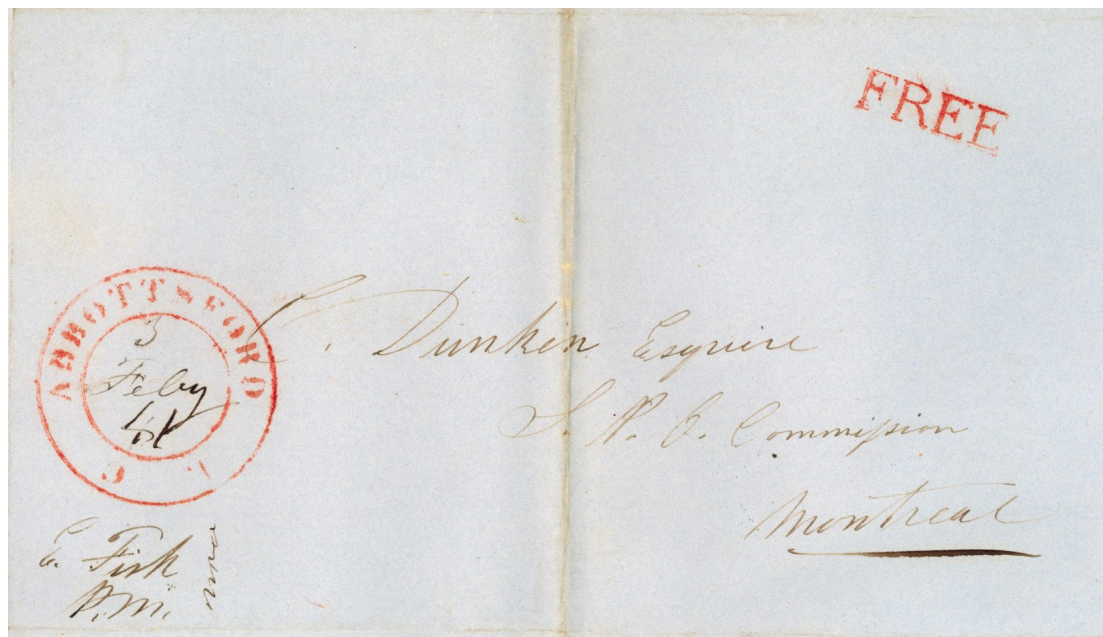 FREE
ABBOTTSFORD
3
Feby
C L
C. Dunkin Esquire
S. P. O. Commission
Montreal
E. Fisk
P.M.